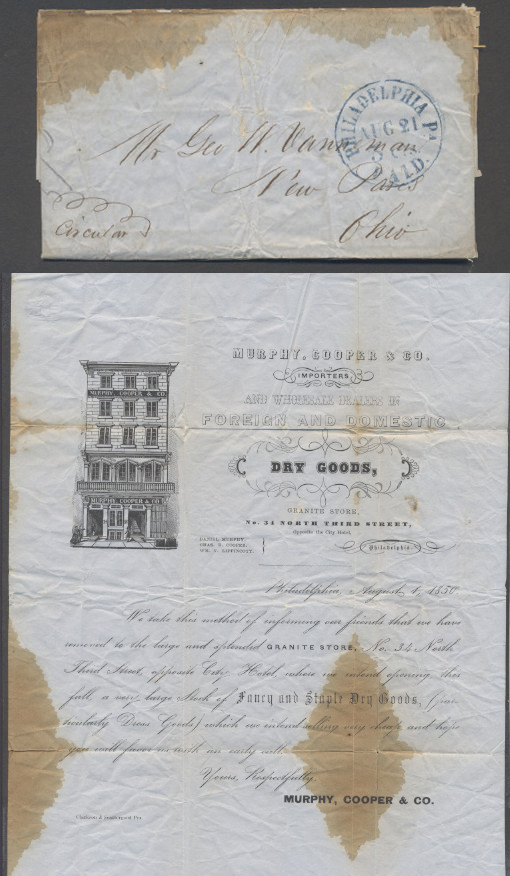 PHILADELPHIA Pa.
AUG 21
PAID.
Mr Geo W. Vanneman
New Paris
Ohio
Circular
MURPHY, COOPER & CO.
IMPORTERS
AND WHOLESALE DEALERS IN
FOREIGN AND DOMESTIC
DRY GOODS,
GRANITE STORE,
No. 34 NORTH THIRD STREET,
Opposite the City Hotel,
Philadelphia
MURPHY COOPER & CO
MURPHY, COOPER & CO
DANIEL MURPHY,
CHAS. D. COOPER,
WM. V. LIPPINCOTT,
Philadelphia, August 1, 1850
We take this method of informing our friends that we have
removed to the large and splended GRANITE STORE, No. 34 North
Third Street, opposite City Hotel, where we intend opening this
fall, a very large Stock of Fancy and Staple Dry Goods, (par-
ticularly Dress Goods) which we intend selling very cheap and hope
you will favor us with an early call.
Yours, Respectfully
MURPHY, COOPER & CO.